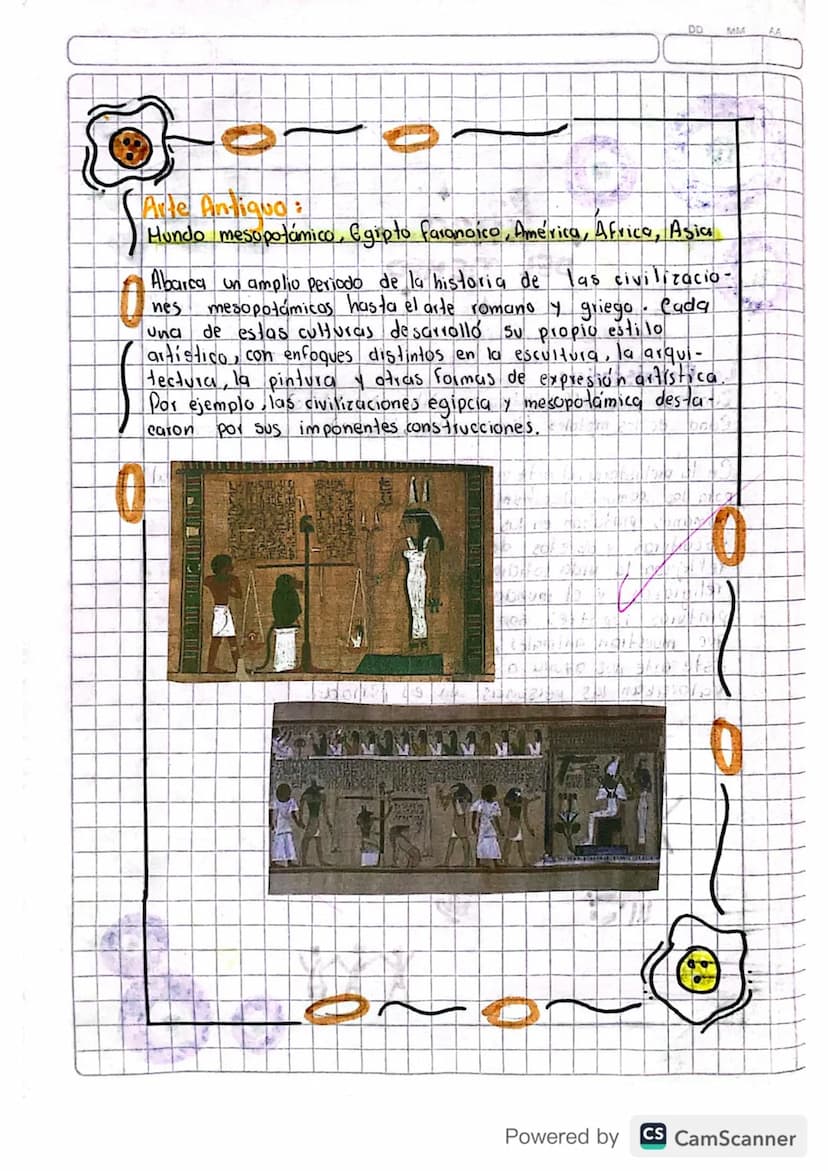 DD MM AA
Arte Antiguo:
Mundo mesopotámico, Egipto faraonico, América, África, Asia
Abarca un amplio periodo de la historia de las civilizacio-
nes mesopotámicos hasta el arte romano y griego. Cada
una de estas culturas desarrolló su propio estilo
artístico, con enfoques distintos en la escultura, la arqui-
tectura, la pintura y otras formas de expresión artística.
Por ejemplo, las civilizaciones egipcia y mesopotámica desta-
caron por sus imponentes construcciones.
Powered by CS CamScanner